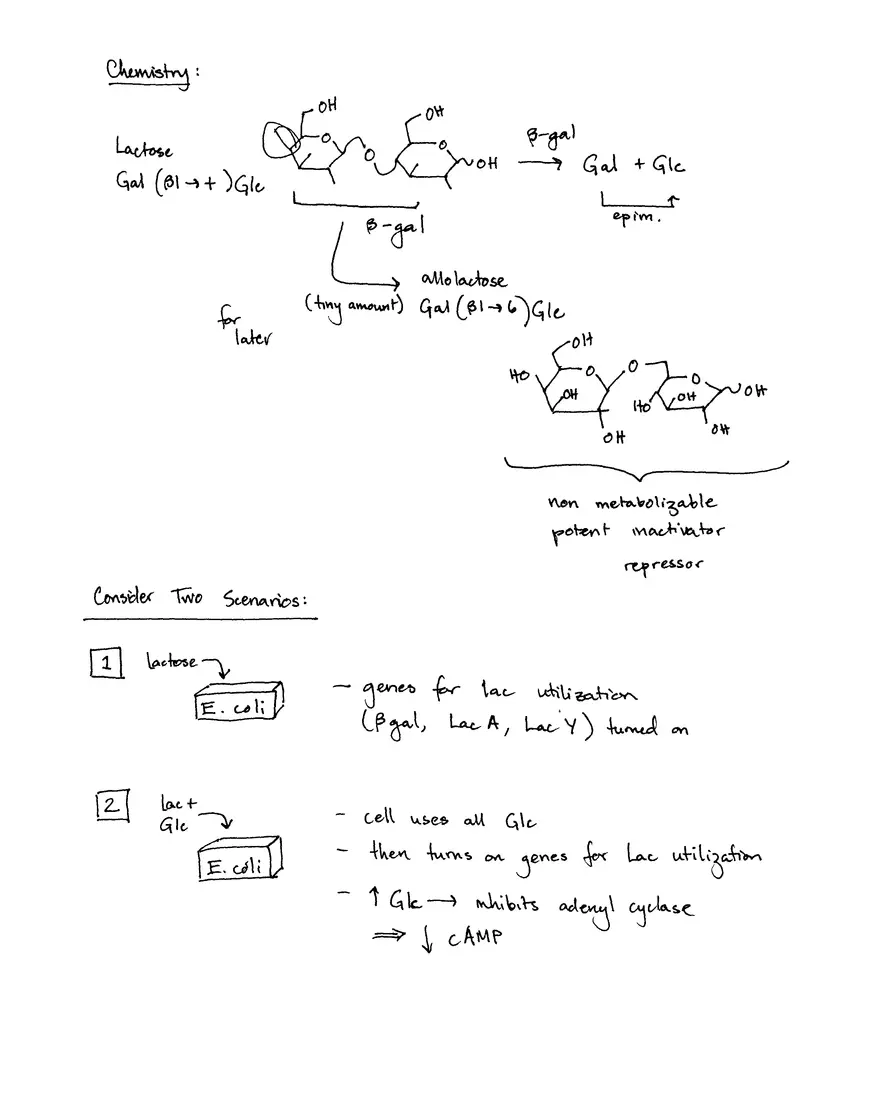 Chemistry:
OH
OH
O
O
O
OH
Lactose
Gal (β1→+)Glc
β-gal
→
Gal + Glc
epim.
β-gal
allolactose
(tiny amount) Gal(β1→6)Glc
for
later
OH
HO
O
O
O
OH
HO
OH
OH
OH
OH
non metabolizable
potent inactivator
repressor
Consider Two Scenarios:
1 lactose
E. coli
- genes for lac utilization
(βgal, Lac A, Lac Y) turned on
2 lac +
Glc
E. coli
- cell uses all Glc
- then turns on genes for Lac utilization
- ↑ Glc → inhibits adenyl cyclase
⇒ ↓ cAMP